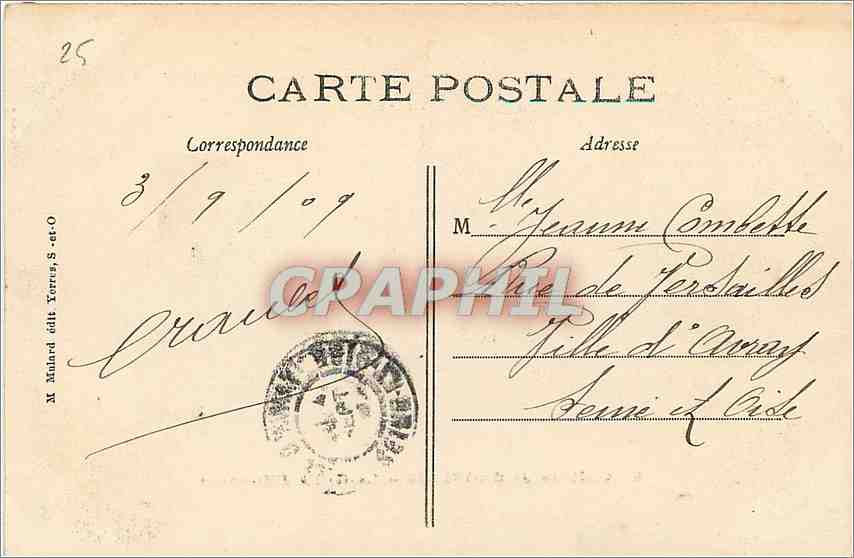 25
CARTE POSTALE
Correspondance
Adresse
3/9/09
M Mulard édit Yerres, S.-et-O
M lle Jeanne Combette
Rue de Versailles
Ville d'Avray
Seine et Oise
CPAPHIL